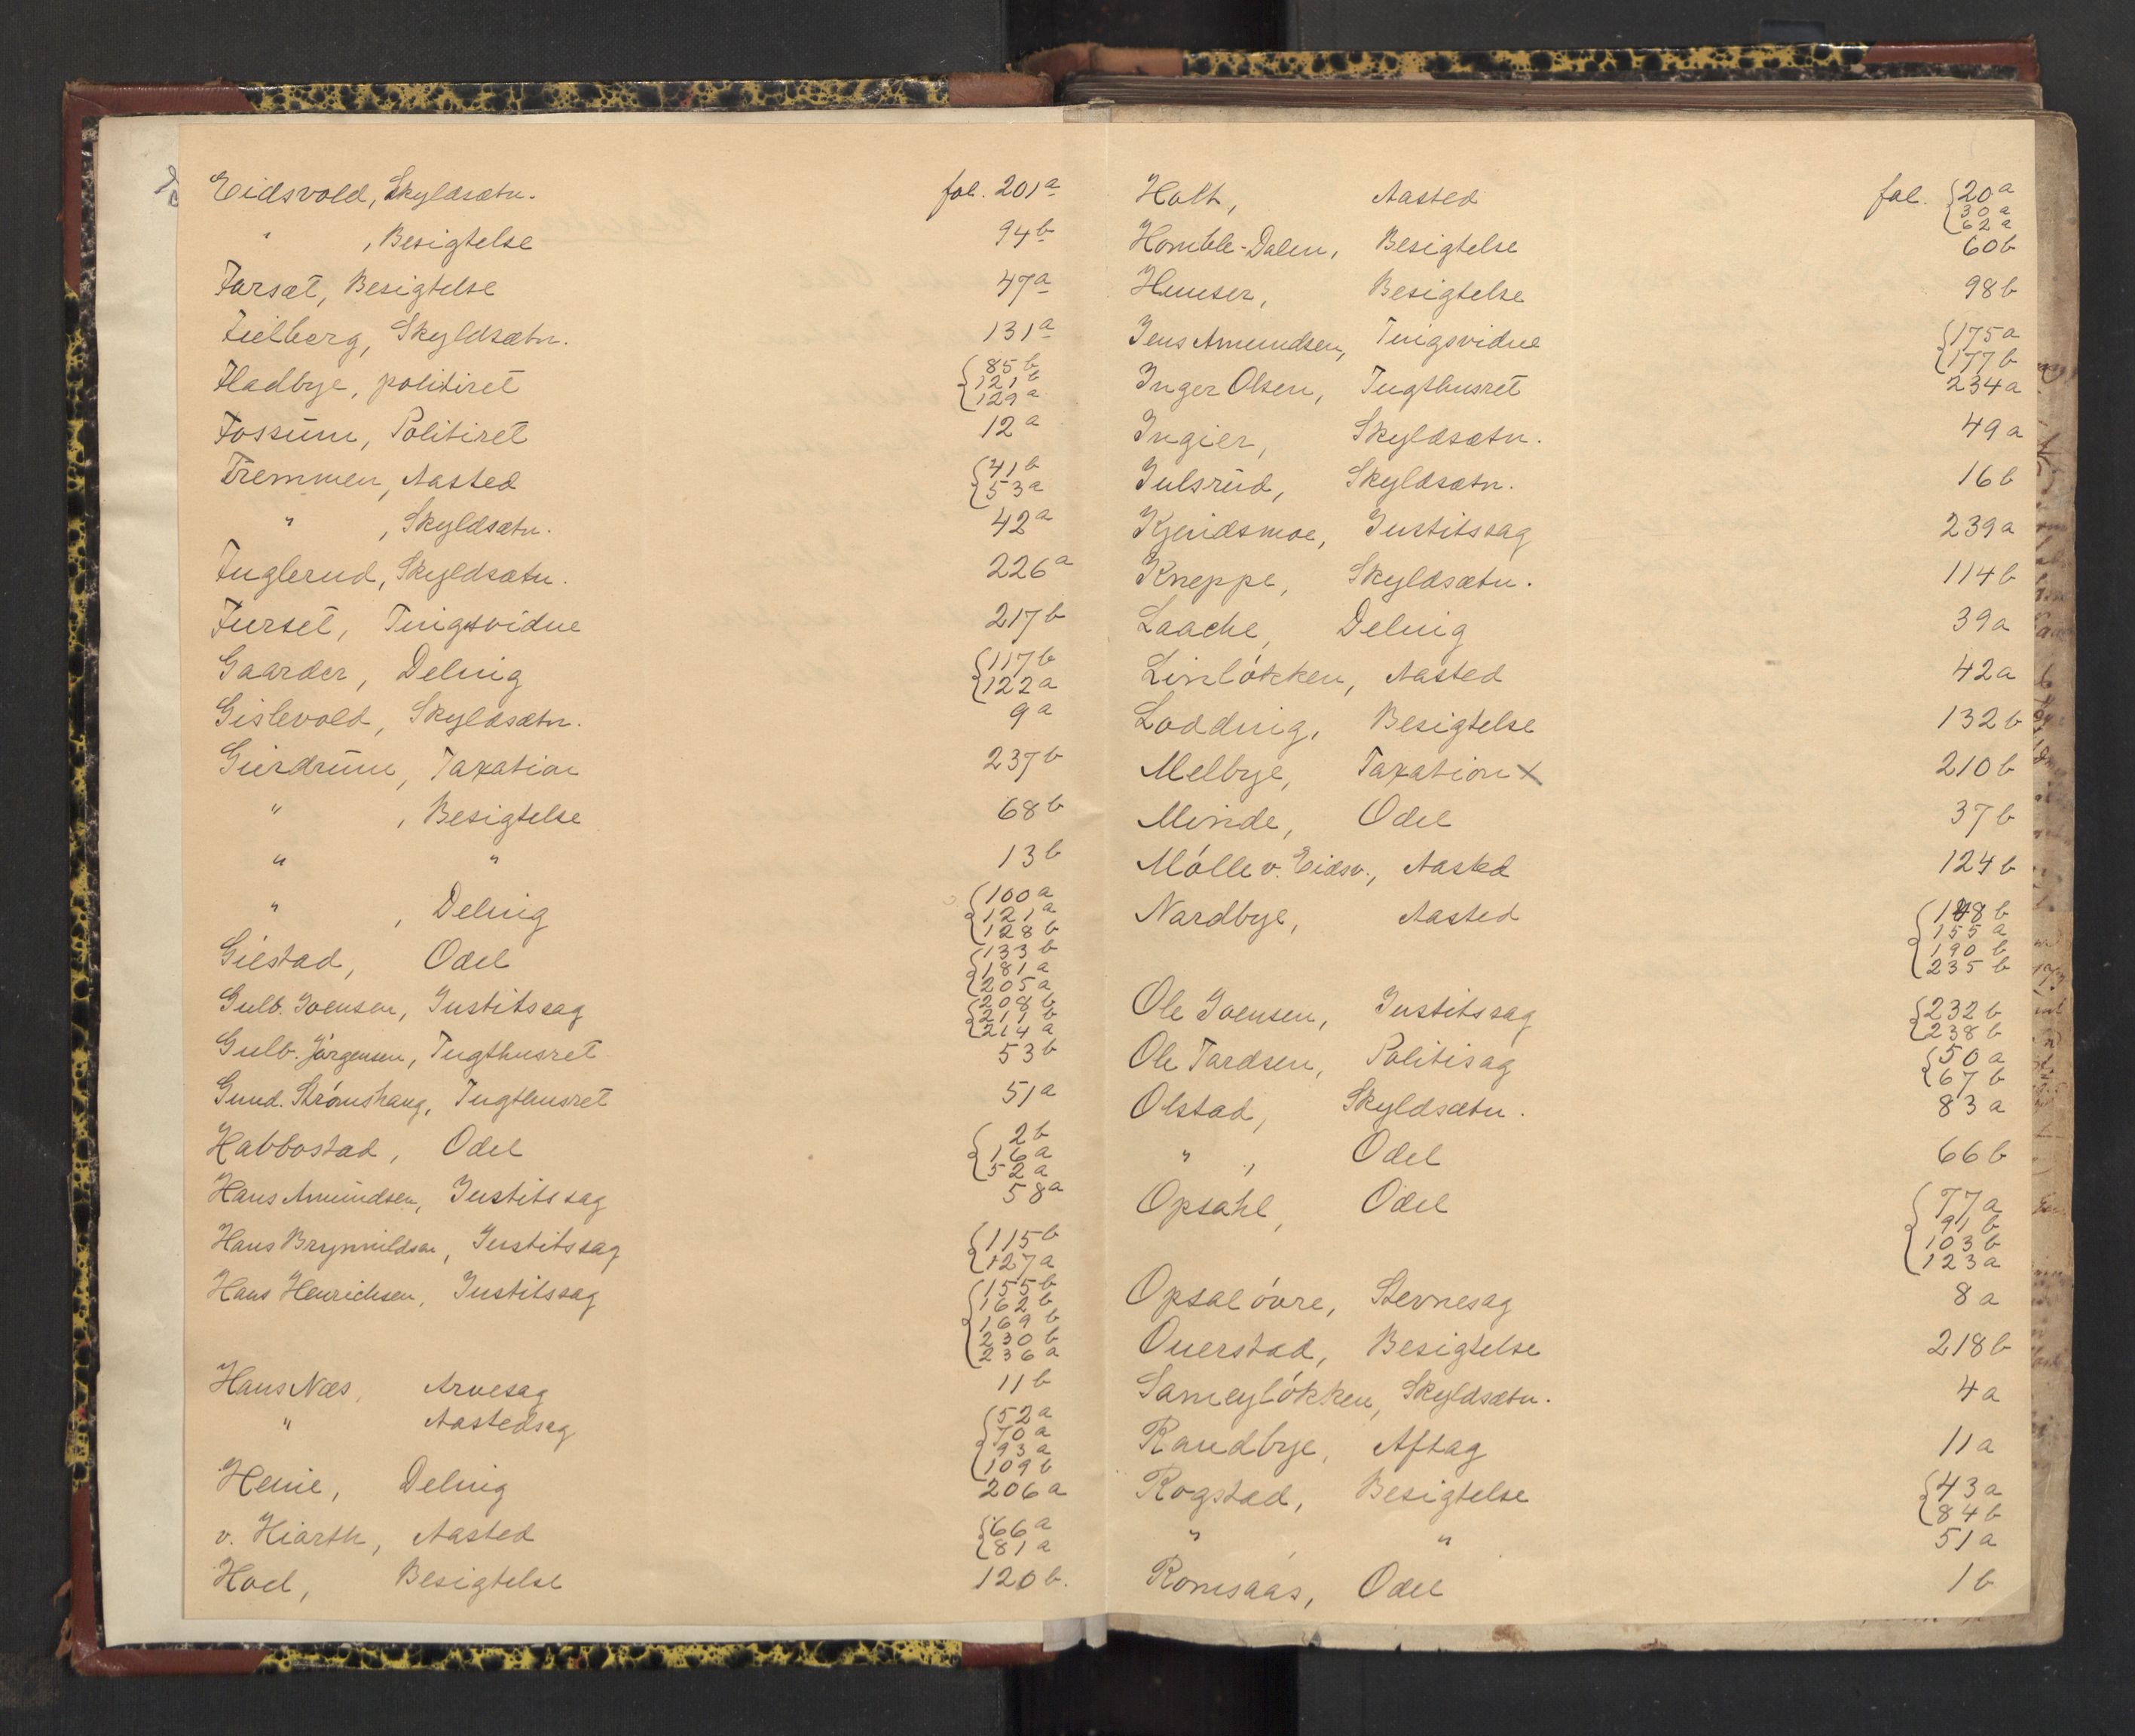 Eidsvold, Skyldsætn. fol. 201a
" , Besigtelse 94b
Farsæt, Besigtelse 47a
Fielberg, Skyldsætn. 131a
Fladbye, politiret 85b
121b
129a
Fossum, Politiret 12a
Fremmen, Aasted 41b
53a
" , Skyldsætn. 42a
Fuglerud, Skyldsætn. 226a
Furset, Tingsvidne 217b
Gaarder, Deling 117b
122a
Gislevold, Skyldsætn. 9a
Gierdrum, Taxation 237b
" , Besigtelse 68b
" " 13b
" , Deling 100a
121a
128b
Giestad, Odel 133b
181a
205a
Gulb. Joensen, Justitssag 208b
211b
214a
Gulb. Jörgensen, Tugthusret 53b
Gund. Strömshaug, Tugthusret 51a
Habbostad, Odel 2b
16a
52a
Hans Amundsen, Justitssag 58a
Hans Brynnildsen, Justitssag 115b
127a
Hans Henrichsen, Justitssag 155b
162b
169b
230b
236a
Hans Næs, Arvesag 11b
" Aastedsag 52a
70a
93a
109b
Henie, Deling 206a
v. Hiarth, Aasted 66a
81a
Hoel, Besigtelse 120b.
Holt, Aasted fol. 20a
30a
62a
Homble-Dalen, Besigtelse 60b
Hunser, Besigtelse 98b
Jens Amundsen, Tingsvidne 175a
177b
Inger Olsen, Tugthusret 234a
Ingier, Skyldsætn. 49a
Julsrud, Skyldsætn. 16b
Kjendsmoe, Justitssag 239a
Kneppe, Skyldsætn. 114b
Laache, Deling 39a
Linlökken, Aasted 42a
Lodding, Besigtelse 132b
Melbye, Taxation x 210b
Minde, Odel 37b
Mölle v. Eidsv., Aasted 124b
Nordbye, Aasted 148b
155a
190b
235b
Ole Joensen, Justitssag 232b
238b
Ole Tordsen, Politisag 50a
67b
Olstad, Skyldsætn. 83a
" , Odel 66b
Opsahl, Odel 77a
91b
103b
123a
Opsal övre, Stevnesag 8a
Ouerstad, Besigtelse 218b
Sameylökken, Skyldsætn. 4a
Randbye, Aftag 11a
Rogstad, Besigtelse 43a
84b
" " 51a
Romsaas, Odel 1b